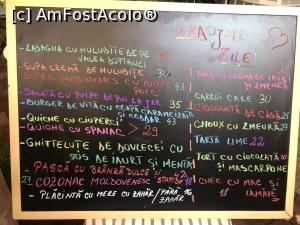 [c] AmFostAcolo®
BUNĂTĂȚILE
ZILEI
- LASAGNA CU HULUBIȚE DE PE
VALEA DOFTANEI
- SUPĂ CREMĂ DE HULUBIȚE 30
- SUPER SANDWICHES CU PULPĂ DE
PORC 43
- SALATĂ CU PULPE DE PUI LA JAR 35
- BURGER DE VITĂ CU CEAPĂ CARAMELIZATĂ
ȘI CEDDAR 43
- QUICHE CU CIUPERCI
- QUICHE CU SPANAC > 29
- GHITELUȚE DE DOVLECEI CU
SOS DE IAURT ȘI MENTĂ
- PASCĂ CU BRÂNZĂ DULCE
27 COZONAC MOLDOVENESC
- PLĂCINTĂ CU MERE CU ZAHĂR / FĂRĂ 16
ZAHĂR
TORT CU CREMĂ DE IAURT
ȘI ZMEURĂ
CARROT CAKE 30
CIOCOLATĂ DE CASĂ 25
CHOUX CU ZMEURĂ 27
TARTĂ LIME 22
TORT CU CIOCOLATĂ
ȘI MASCARPONE
CHEC CU MAC ȘI
18 LĂMÂIE